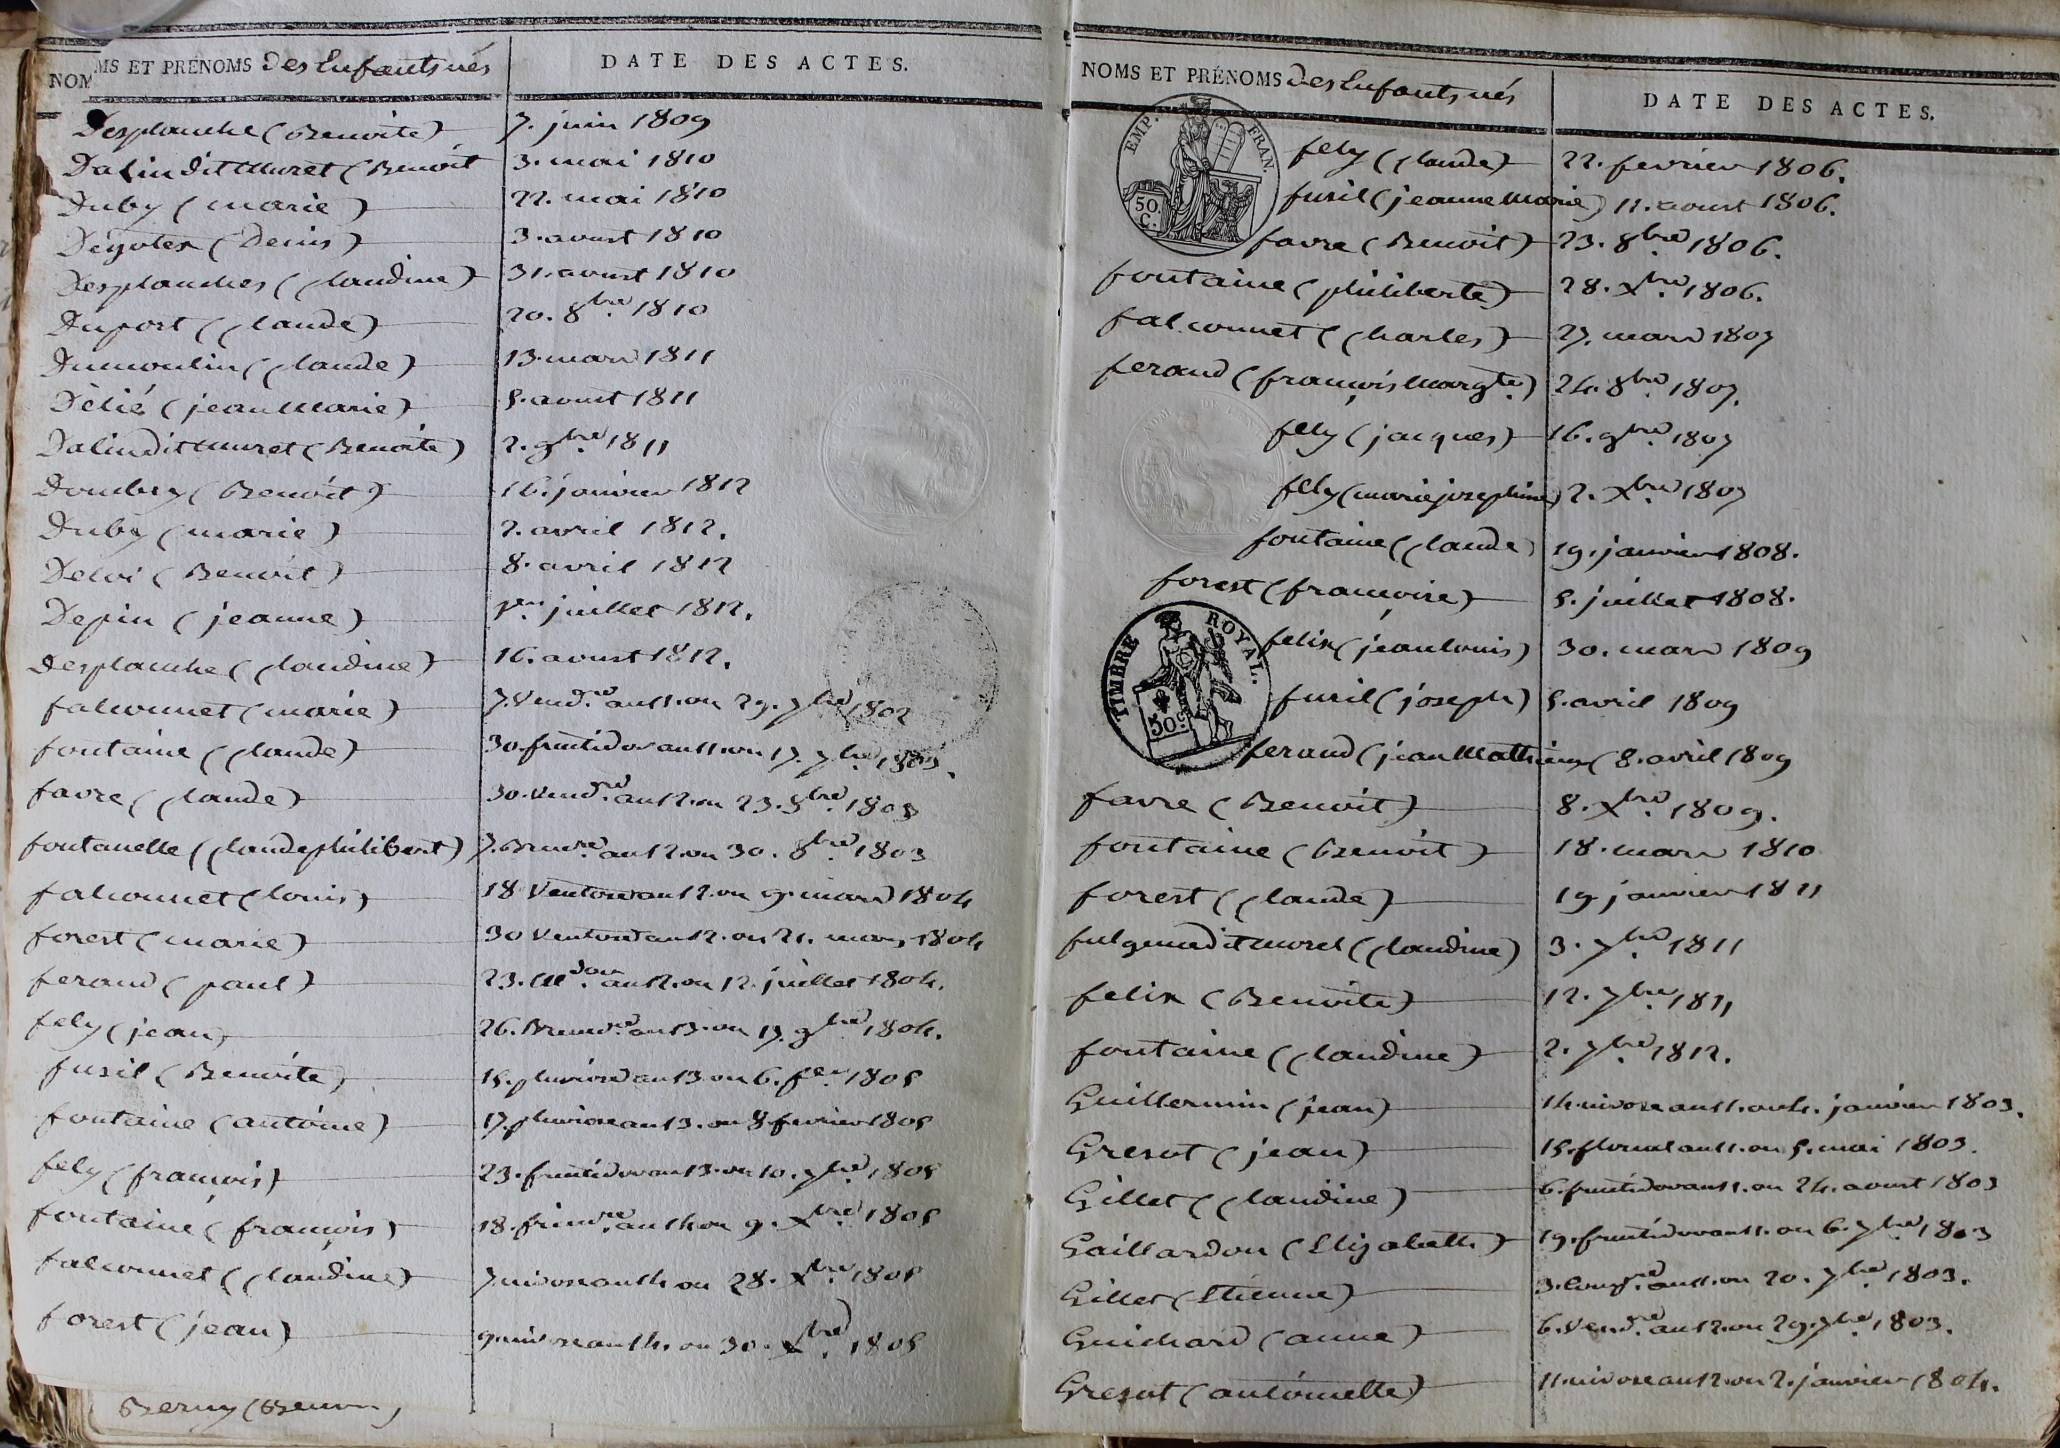 NOMS ET PRÉNOMS des Enfants nés
DATE DES ACTES.
Desplanche (Benoite) 7. juin 1809
Dalin dit Muret (Benoit 3. mai 1810
Duby (marie) 22. mai 1810
Degoles (Denis) 3. aoust 1810
Desplanches (Claudine) 31. aoust 1810
Duport (Claude) 20. 8bre 1810
Dumoulin (Claude) 13. mars 1811
Délié (jean Marie) 5. aoust 1811
Dalin dit Muret (Benoite) 2. 9bre 1811
Dombey (Benoit) 16. janvier 1812
Duby (marie) 2. avril 1812.
Deloi (Benoit) 8. avril 1812
Depin (jeanne) 1er juillet 1812.
Desplanche (Claudine) 16. aoust 1812.
falconnet (marie) 7. Vendre an 11. ou 29. 7bre 1802
fontaine (Claude) 30. fructidor an 11. ou 17. 7bre 1803.
favre (Claude) 30. Vendre an 12. ou 23. 8bre 1803
fontanelle (Claude philibert) 7. Brumre an 12. ou 30. 8bre 1803
falconnet (louis) 18 Ventose an 12. ou 9. mars 1804
forest (marie) 30 Ventose an 12. ou 21. mars 1804
feraud (paul) 23. Messdor an 12. ou 12. juillet 1804.
fely (jean) 26. Brumre an 13. ou 17. 9bre 1804.
fusil (Benoite) 15. pluviose an 13. ou 6. fer 1805
fontaine (antoine) 17. pluviose an 13. ou 8 fevrier 1805
fely (françois) 23. fructidor an 13. ou 10. 7bre 1805
fontaine (françois) 18. frimre an 14 ou 9. Xbre 1805
falconnet (Claudine) 7 nivose an 14 ou 28. Xbre 1805
forest (jean) 9. nivose an 14. ou 30. Xbre 1805
NOMS ET PRÉNOMS des Enfants nés
DATE DES ACTES.
EMP. FRAN.
50. C.
fely (Claude) 22. fevrier 1806.
fusil (jeanne Marie) 11. aoust 1806.
favre (Benoit) 23. 8bre 1806.
fontaine (philiberte) 28. Xbre 1806.
falconnet (Charles) 27. mars 1807
feraud (françois Margte.) 24. 8bre 1807.
fely (jacques) 16. 9bre 1807
fely (marie josephine) 2. Xbre 1807
fontaine (Claude) 19. janvier 1808.
forest (françoise) 5. juillet 1808.
TIMBRE ROYAL.
50c
felix (jean louis) 30. mars 1809
fusil (joseph) 5. avril 1809
feraud (jean Mathieu) 8. avril 1809
favre (Benoit) 8. Xbre 1809.
fontaine (Benoit) 18. mars 1810
forest (Claude) 19. janvier 1811
dit muret (Claudine) 3. 7bre 1811
felix (Benoite) 12. 7bre 1811
fontaine (Claudine) 2. 7bre 1812.
Guillermin (jean) 14. nivose an 11. ou 4. janvier 1803.
Gresot (jean) 15. floreal an 11. ou 5. mai 1803.
Gillet (Claudine) 6. fructidor an 11. ou 24. aoust 1803
Gaillardon (Elizabeth) 19. fructidor an 11. ou 6. 7bre 1803
Gillet (Etienne) 3. Compre an 11. ou 20. 7bre 1803.
Guichard (anne) 6. Vendre an 12. ou 29. 7bre 1803.
Gresot (antoinette) 11. nivose an 12. ou 2. janvier 1804.